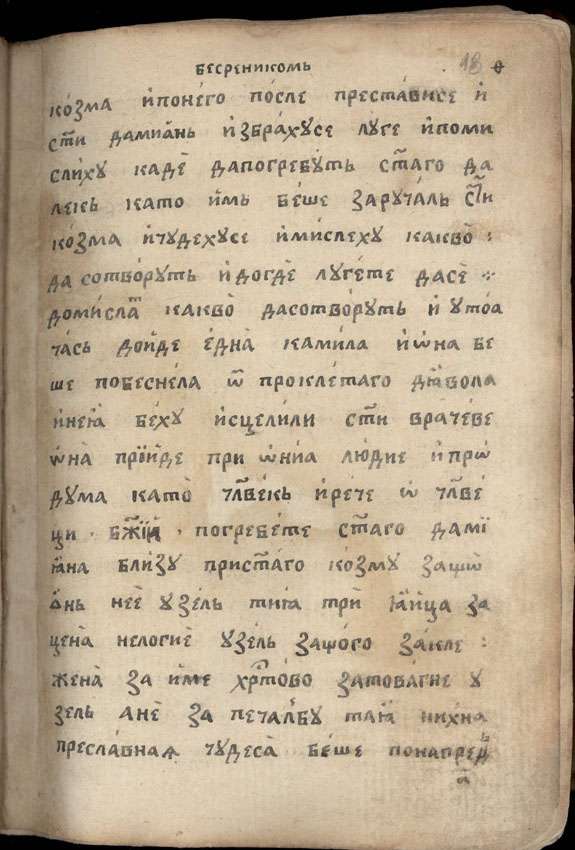 бесреникомь 18 ѳ
ко́зма и҆поне́го по́сле преста́висе и҆
ст҃и дамиа́нь и҆збра́хꙋсе лꙋге и҆поми
сли́хꙋ кадѐ дапогребꙋ́ть ст҃аго да
лекь като и҆мь бе́ше зарꙋча́ль ст҃и
ко́зма и҆чꙋдехꙋсе и҆мислехꙋ какво̀ :
да сотво́рꙋть и҆догдѐ лꙋге́те дасѐ ⁘
доми́слѧт какво̀ дасотво́рꙋть и҆ ꙋтоа
ча́сь дойде е҆дна̀ ками́ла и҆ ѡ҆на бе
ше побесне́ла ѿ прокле́таго дїа́вола
и҆нею҆ бе́хꙋ и҆сцели́ли ст҃и враче́ве
ѡ҆на̀ прїиде при ѡ҆ниа лю́дие и҆прѡ
дꙋма като̀ чл҃векь и҆рече ѡ҆ чл҃ве
ци бж҃їи · погребе́те ст҃аго дамї
ꙗ҆на бли́зꙋ прист҃а́го ко́змꙋ защѡ̀
ѻ҆нь неѐ ꙋзе́ль тиꙗ трѝ ꙗ҆йца за
цена̀ нелогиѐ ꙋзе́ль защо́го за́кле :
жена̀ за и҆ме хрⷭ҇то́во затова́гие ꙋ
зель а҆нѐ за печа́лбꙋ таꙗ҆ нихна
пресла́внаѧ чꙋдеса̀ бе́ше понапредь